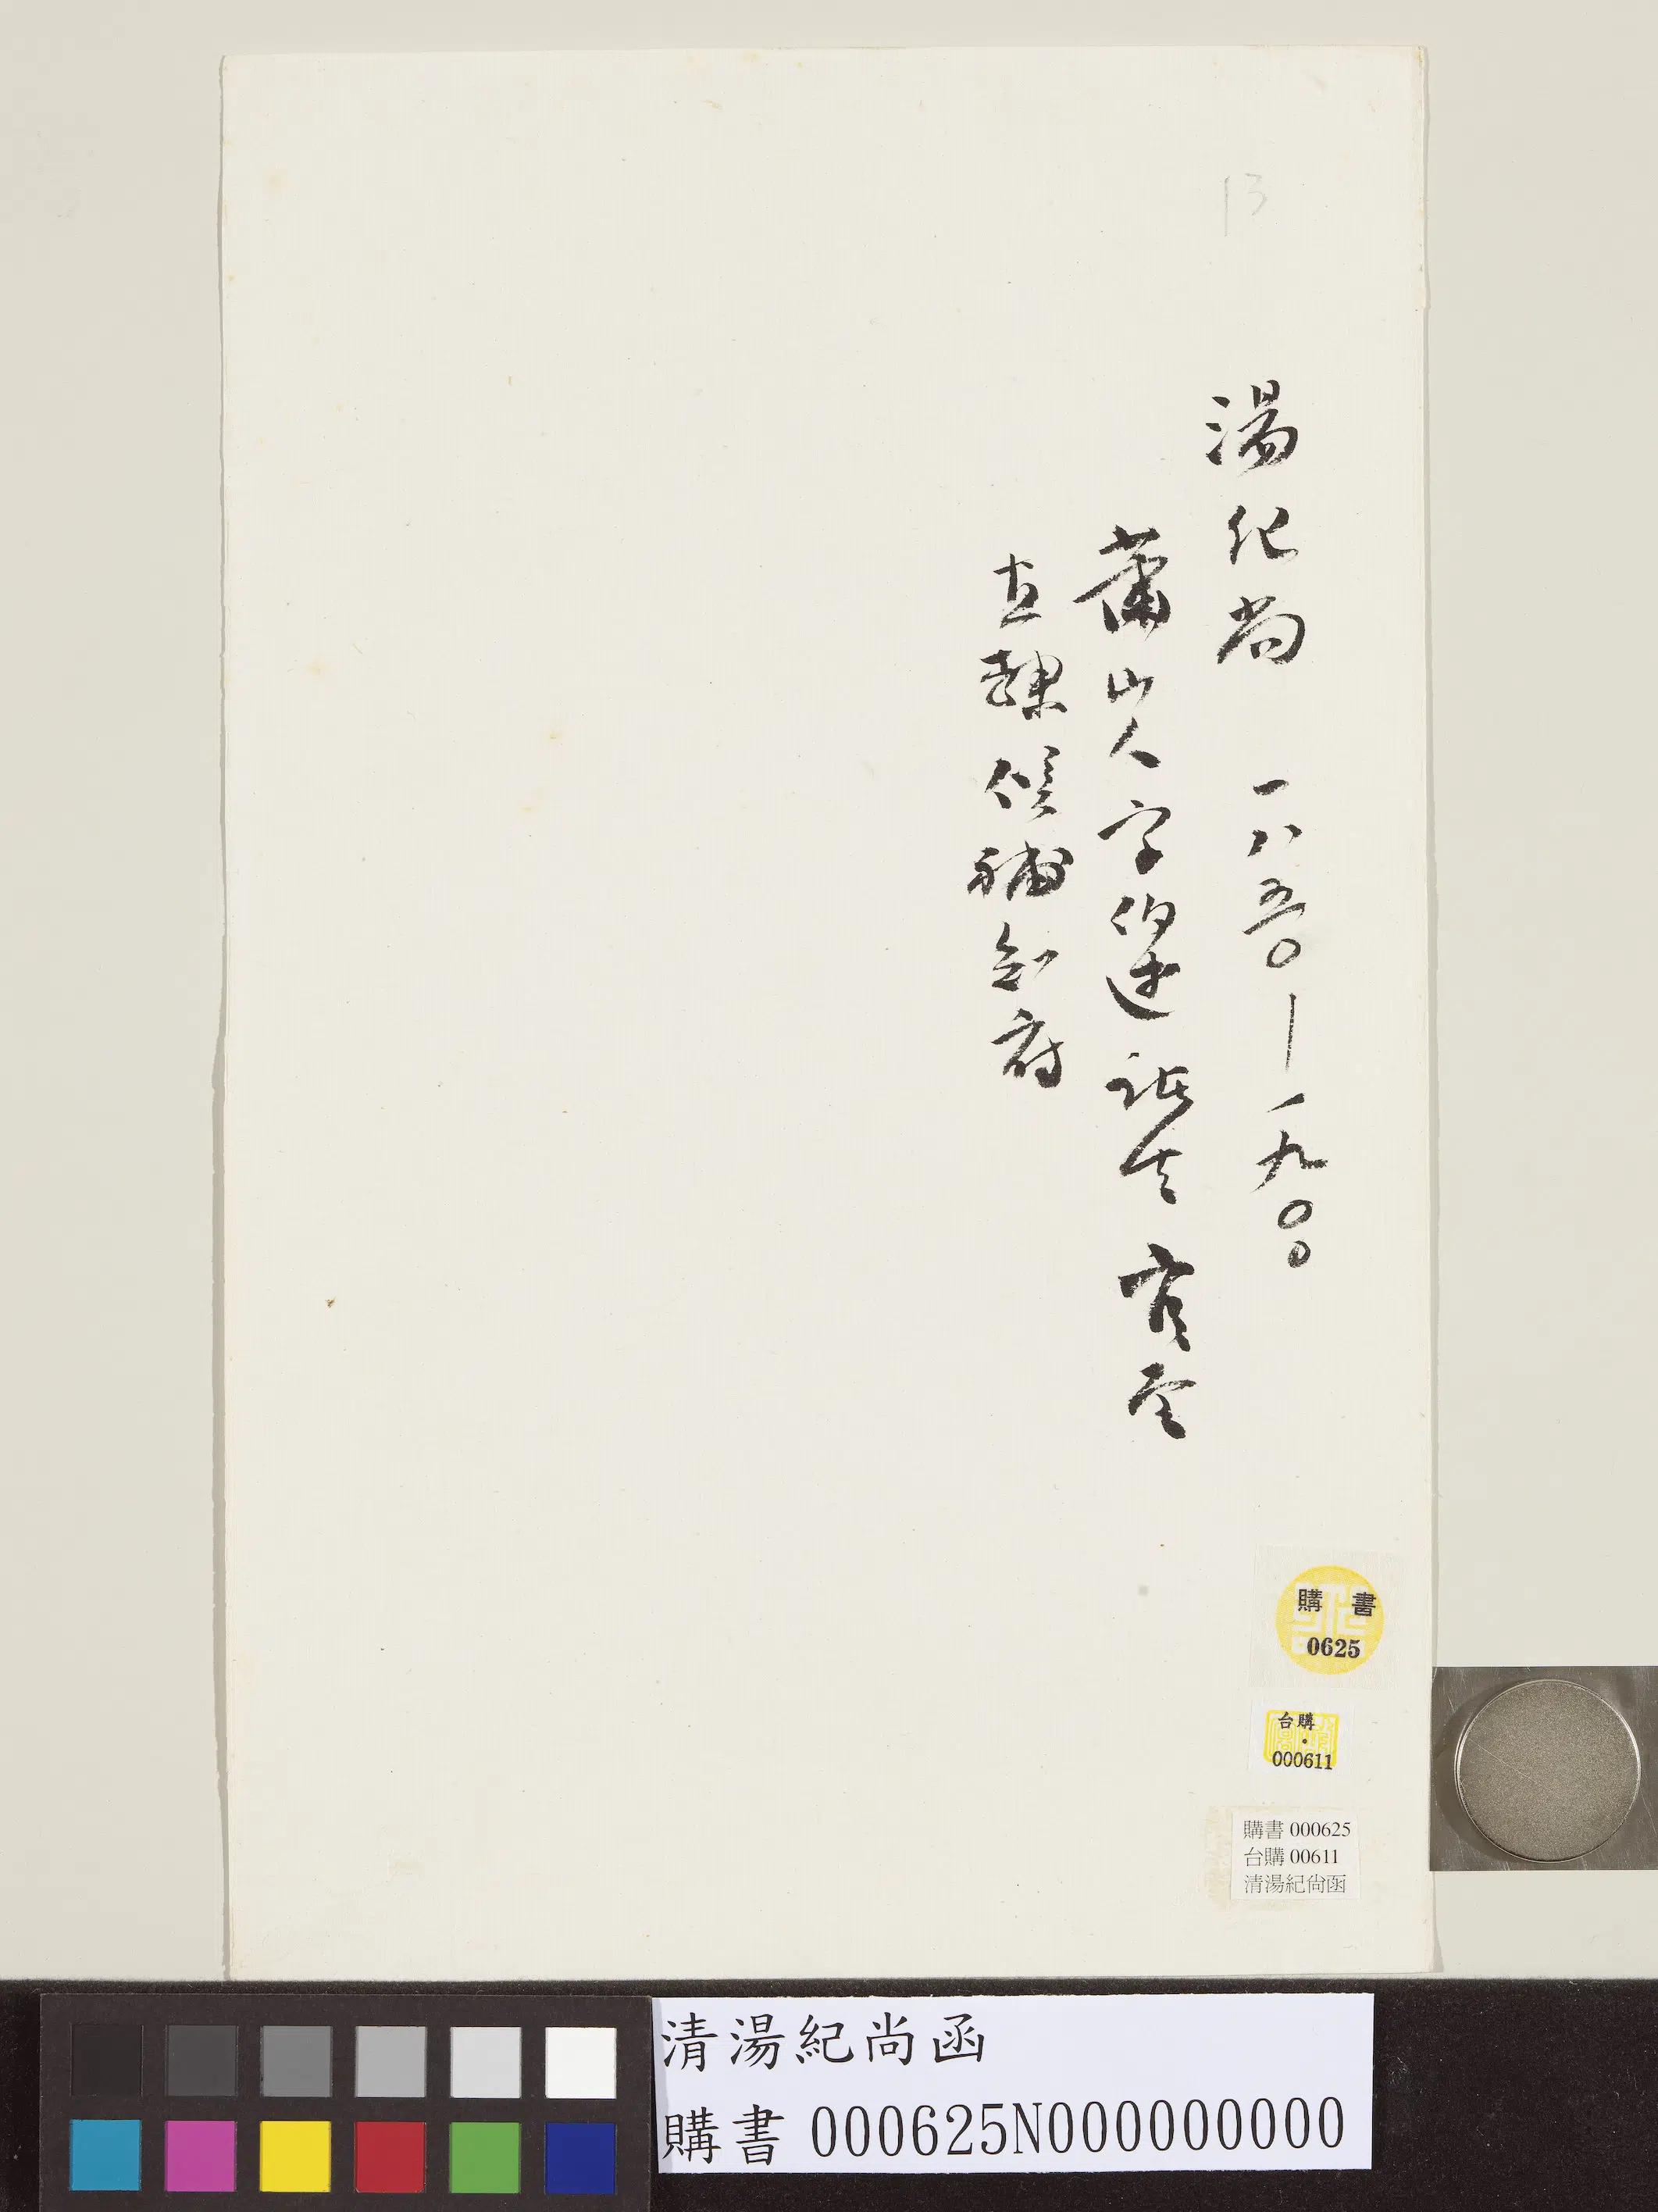 13
湯紀尚 一八五〇—一九〇〇
蕭山人字伯述諸生 官至
直隸候補知府
購書
0625
台購
000611
購書 000625
台購 00611
清湯紀尙函
清湯紀尚函
購書 000625N000000000